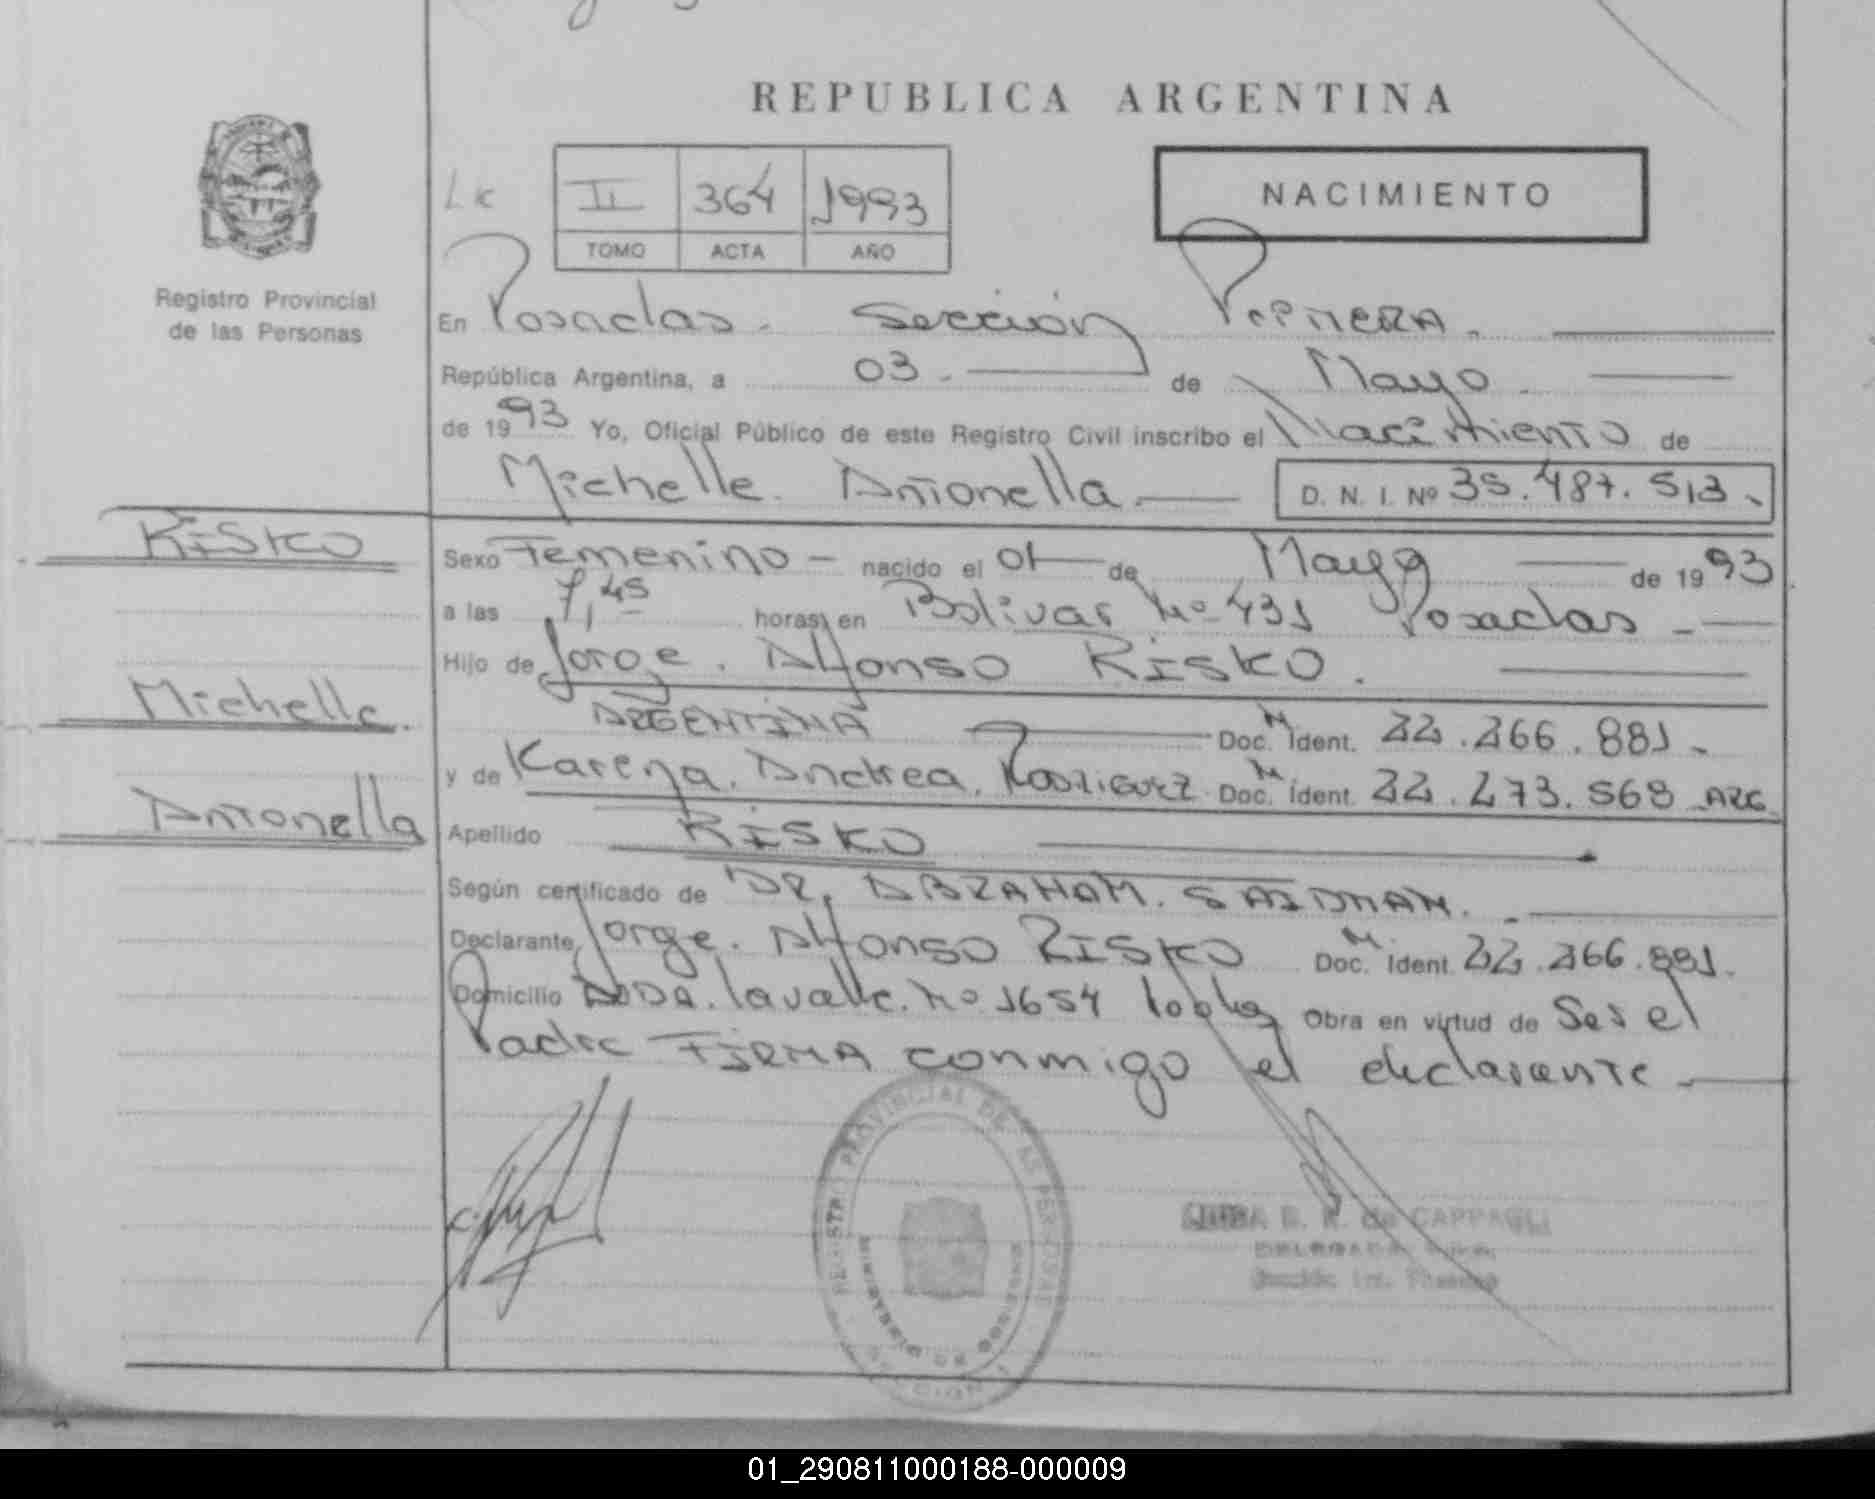 REPUBLICA ARGENTINA
II 364 1993
TOMO ACTA AÑO
NACIMIENTO
Registro Provincial
de las Personas
En Posadas. Sección Primera.
República Argentina, a 03 de Mayo
de 1993 Yo, Oficial Público de este Registro Civil inscribo el Nacimiento de
Michelle Antonella D. N. I. Nº 35.487.513
RISKO
Sexo Femenino nacido el 01 de Mayo de 1993
a las 7,45 horas en Bolivar Nº 431 Posadas
Hijo de Jorge Alfonso RISKO.
Michelle
ARGENTINA Doc. Ident. 22.266.881
y de Karena Andrea Rodriguez Doc. Ident. 22.273.568 ARG
Antonella
Apellido RISKO
Según certificado de DR. ABRAHAM SAIDMAN.
Declarante Jorge Alfonso RISKO Doc. Ident. 22.266.881.
Domicilio AVDA. Lavalle Nº 1654 Obra en virtud de Ser el
Padre FIRMA conmigo el declarante
REGISTRO PROVINCIAL DE LAS PERSONAS
MINISTERIO DE GOBIERNO
de CAPPAGLI
DELEGADA
01_290811000188-000009